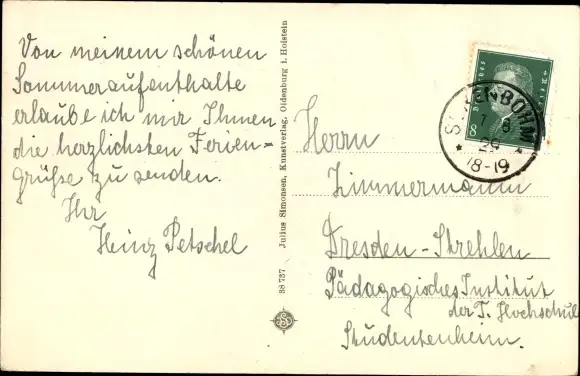 Von meinem schönen
Sommeraufenthalte
erlaube ich mir Ihnen
die herzlichsten Ferien-
grüße zu senden.
Ihr
Heinz Petschel
38 737 Julius Simonsen, Kunstverlag, Oldenburg i. Holstein
SCHÖNBÖHM
18-19
8
Herrn
Zimmermann
Dresden-Strehlen
Pädagogisches Institut
der T. Hochschul
Studentenheim.